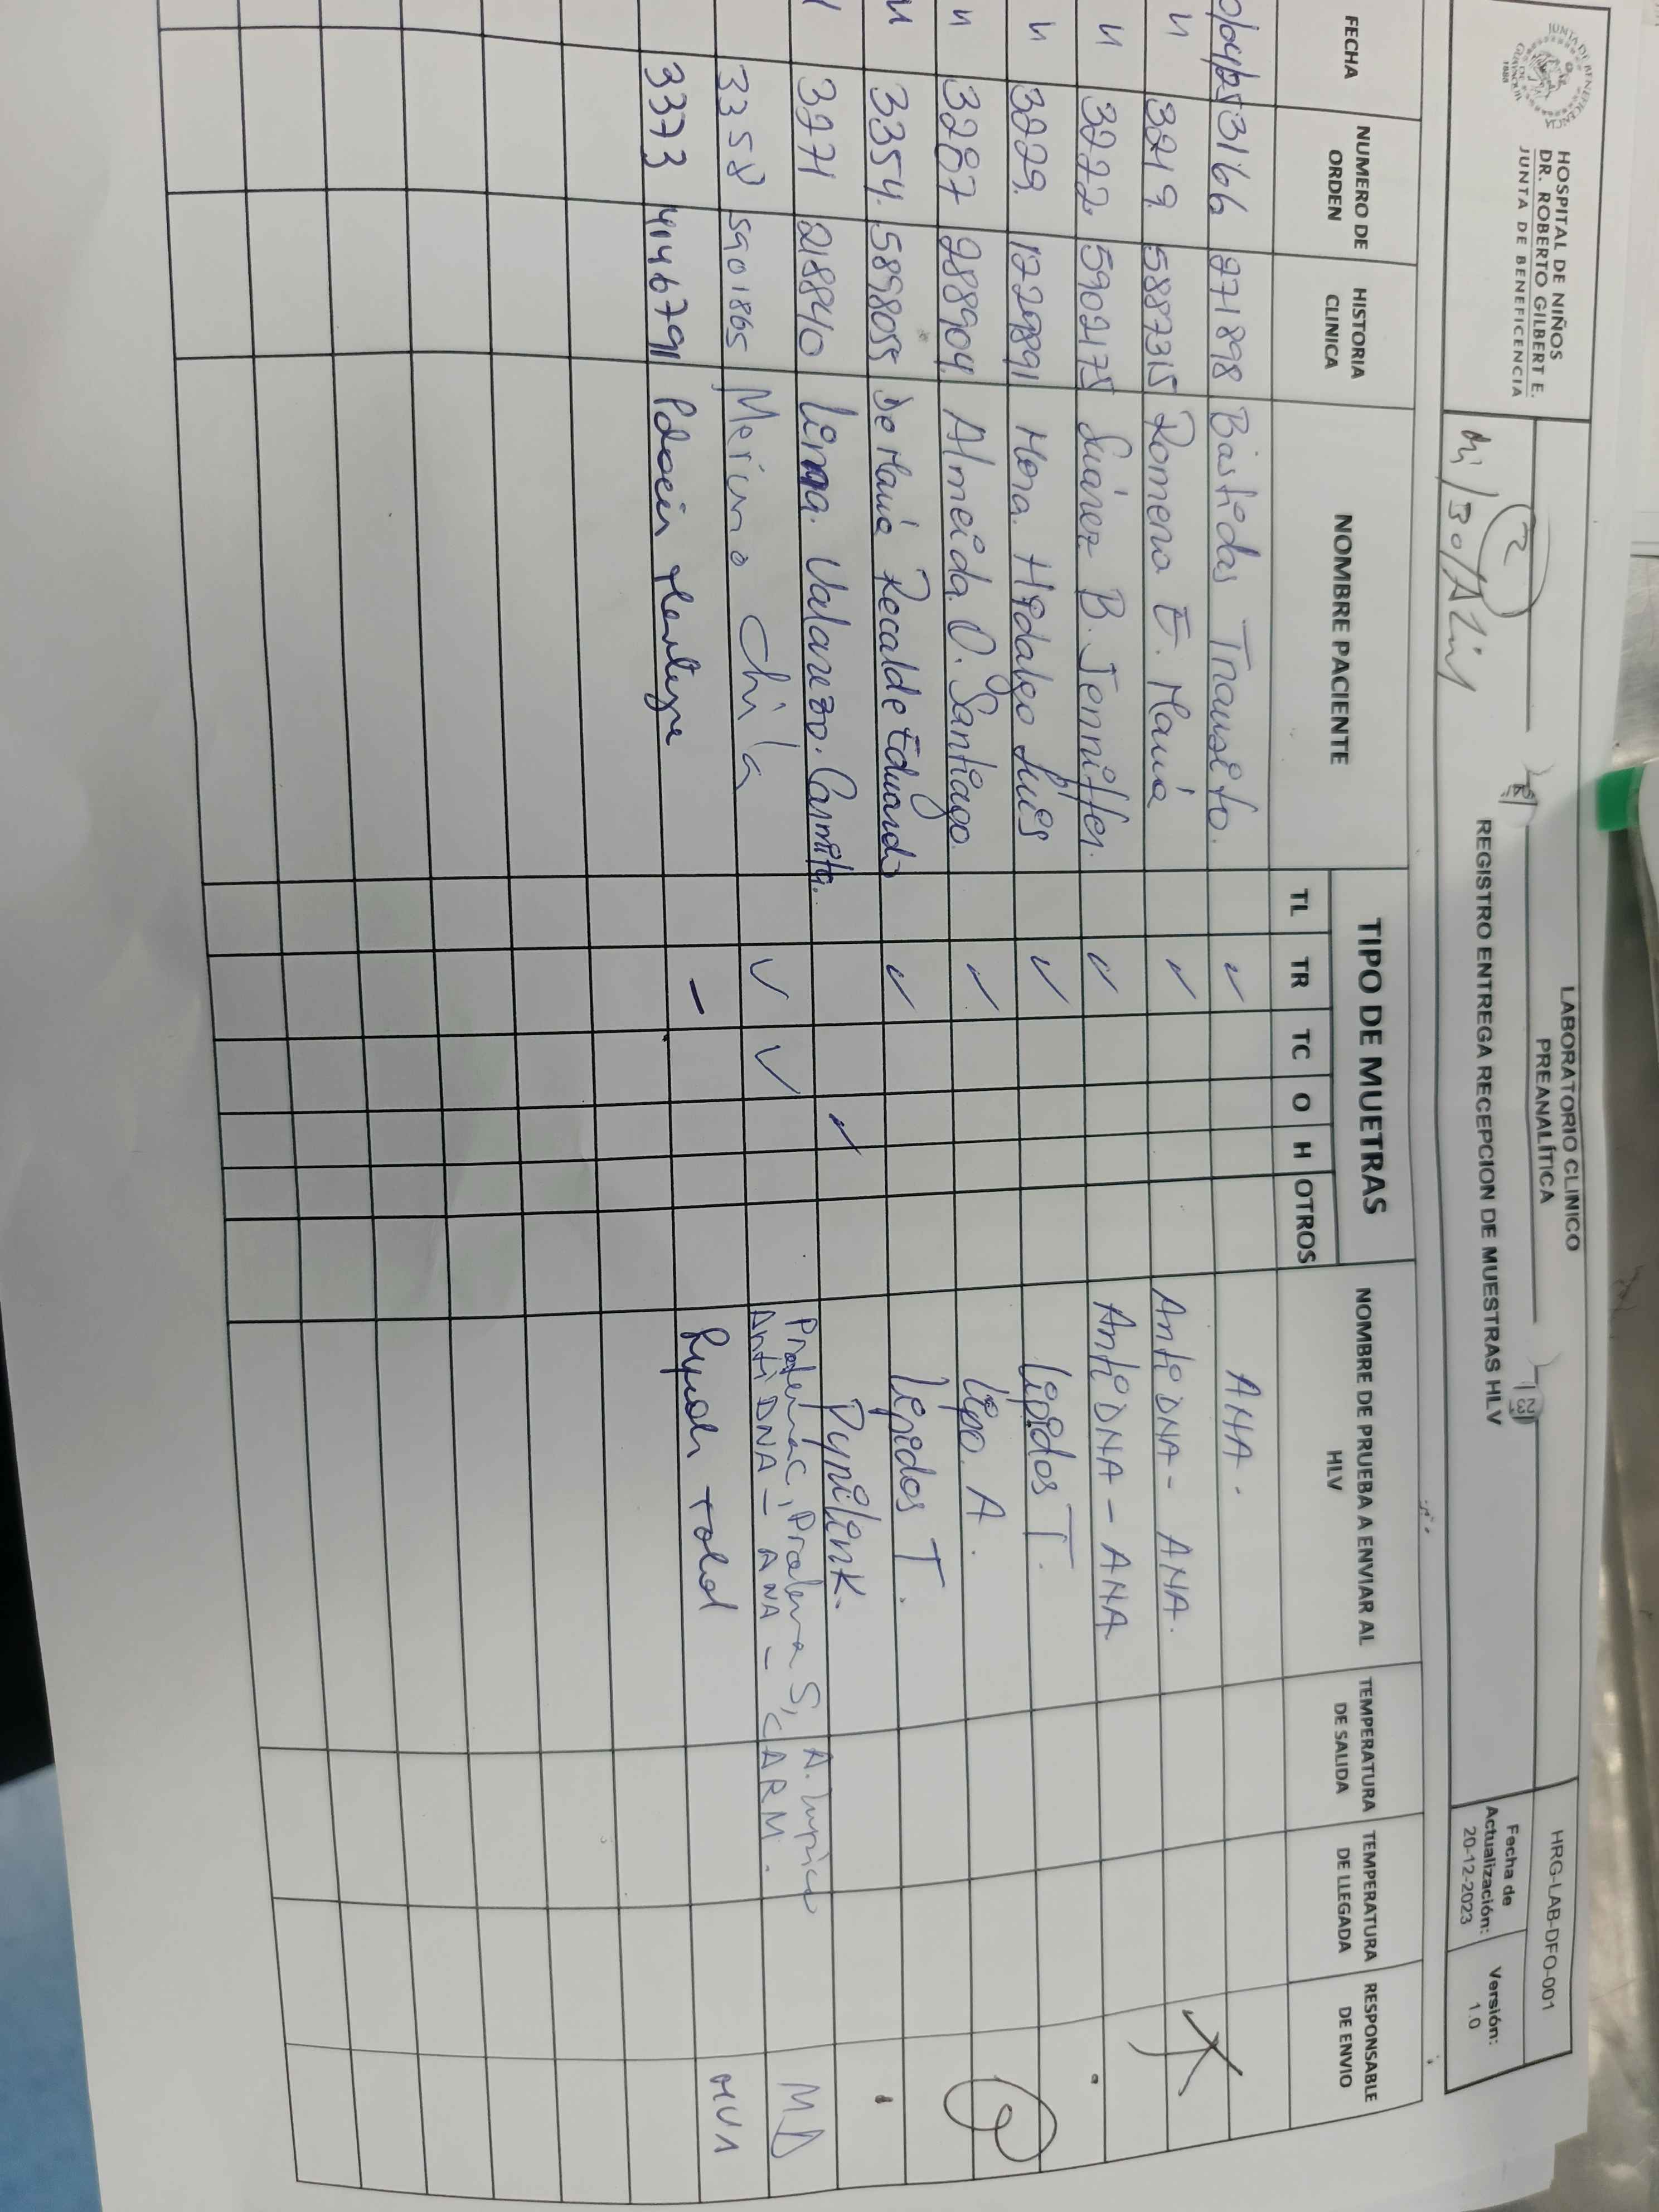 JUNTA DE BENEFICENCIA DE GUAYAQUIL 1888
HOSPITAL DE NIÑOS
DR. ROBERTO GILBERT E.
JUNTA DE BENEFICENCIA
LABORATORIO CLINICO
PREANALÍTICA
REGISTRO ENTREGA RECEPCION DE MUESTRAS HLV
HRG-LAB-DFO-001
Fecha de Actualización: 20-12-2023
Versión: 1.0
FECHA NUMERO DE ORDEN HISTORIA CLINICA NOMBRE PACIENTE TIPO DE MUETRAS NOMBRE DE PRUEBA A ENVIAR AL HLV TEMPERATURA DE SALIDA TEMPERATURA DE LLEGADA RESPONSABLE DE ENVIO
TL TR TC O H OTROS
3166 271898 Bastidas Transito. ✓ ANA.
" 3219 5887315 Romero E. Maria ✓ Anti DNA - ANA.
" 3222 5902175 Suárez B. Jenniffer. ✓ Anti DNA - ANA
" 3229. 1229891 Mora. Hidalgo Luis ✓ Lipidos T.
" 3287 288904 Almeida O. Santiago. ✓ Lipo. A.
" 3354. 5898055 De Maria Recalde Eduardo ✓ Lipidos T.
3271 218840 Lima. Valarezo. Carmita. ✓ Pyrilink.
3358 5901865 Merino Chila ✓ ✓ Proteina C, Proteina S, A. Lupico
Anti DNA - ANA - CARM. MD
3373 4146791 - total